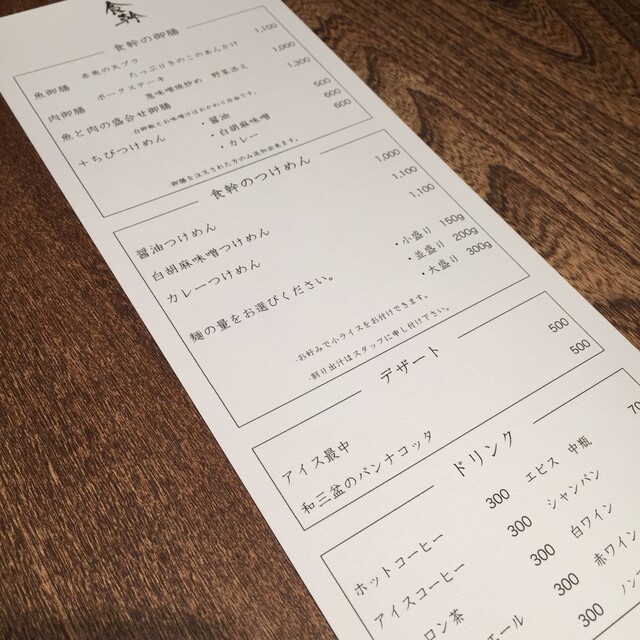 食幹
食幹の御膳
魚御膳 赤魚の天プラ たっぷりきのこのあんかけ 1,100
肉御膳 ポークステーキ 葱味噌焼炒め 野菜添え 1,000
魚と肉の盛合せ御膳 1,300
白御飯とお味噌汁はおかわり自由です。
+ちびつけめん ・醤油 500
・白胡麻味噌 600
・カレー 600
・御膳を注文された方のみ追加出来ます。
食幹のつけめん
醤油つけめん 1,000
白胡麻味噌つけめん 1,100
カレーつけめん 1,100
麺の量をお選びください。 ・小盛り 150g
・並盛り 200g
・大盛り 300g
・お好みで小ライスをお付けできます。
・割り出汁はスタッフに申し付け下さい。
デザート
アイス最中 500
和三盆のパンナコッタ 500
ドリンク
ホットコーヒー 300 エビス 中瓶 70
アイスコーヒー 300 シャンパン
ロン茶 300 白ワイン
ール 300 赤ワイン
300 ノンー